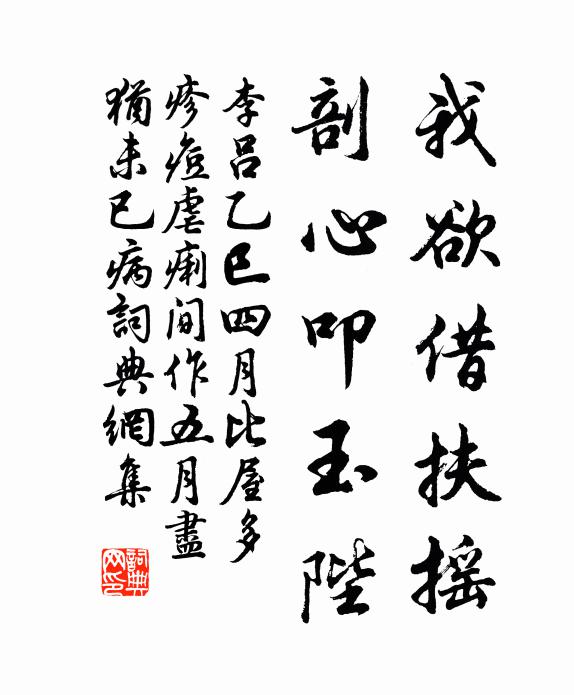 我欲借扶摇
剖心叩玉陛
李吕乙巳四月比屋多
疹痘虐痢间作五月盡
猶未已病詞典網集
詞典网印